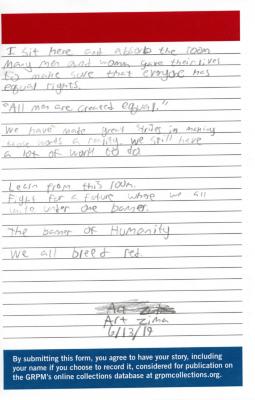 I sit here and absorb the room
Many men and women gave their lives
to make sure that everyone has
equal rights.
"All men are created equal."
We have made great strides in making
these words a reality, we still have
a lot of work to do
Learn from this room.
Fight for a future where we all
unite under one banner.
The banner of Humanity
We all breed red.
Art Zima
6/13/19
By submitting this form, you agree to have your story, including
your name if you choose to record it, considered for publication on
the GRPM's online collections database at grpmcollections.org.